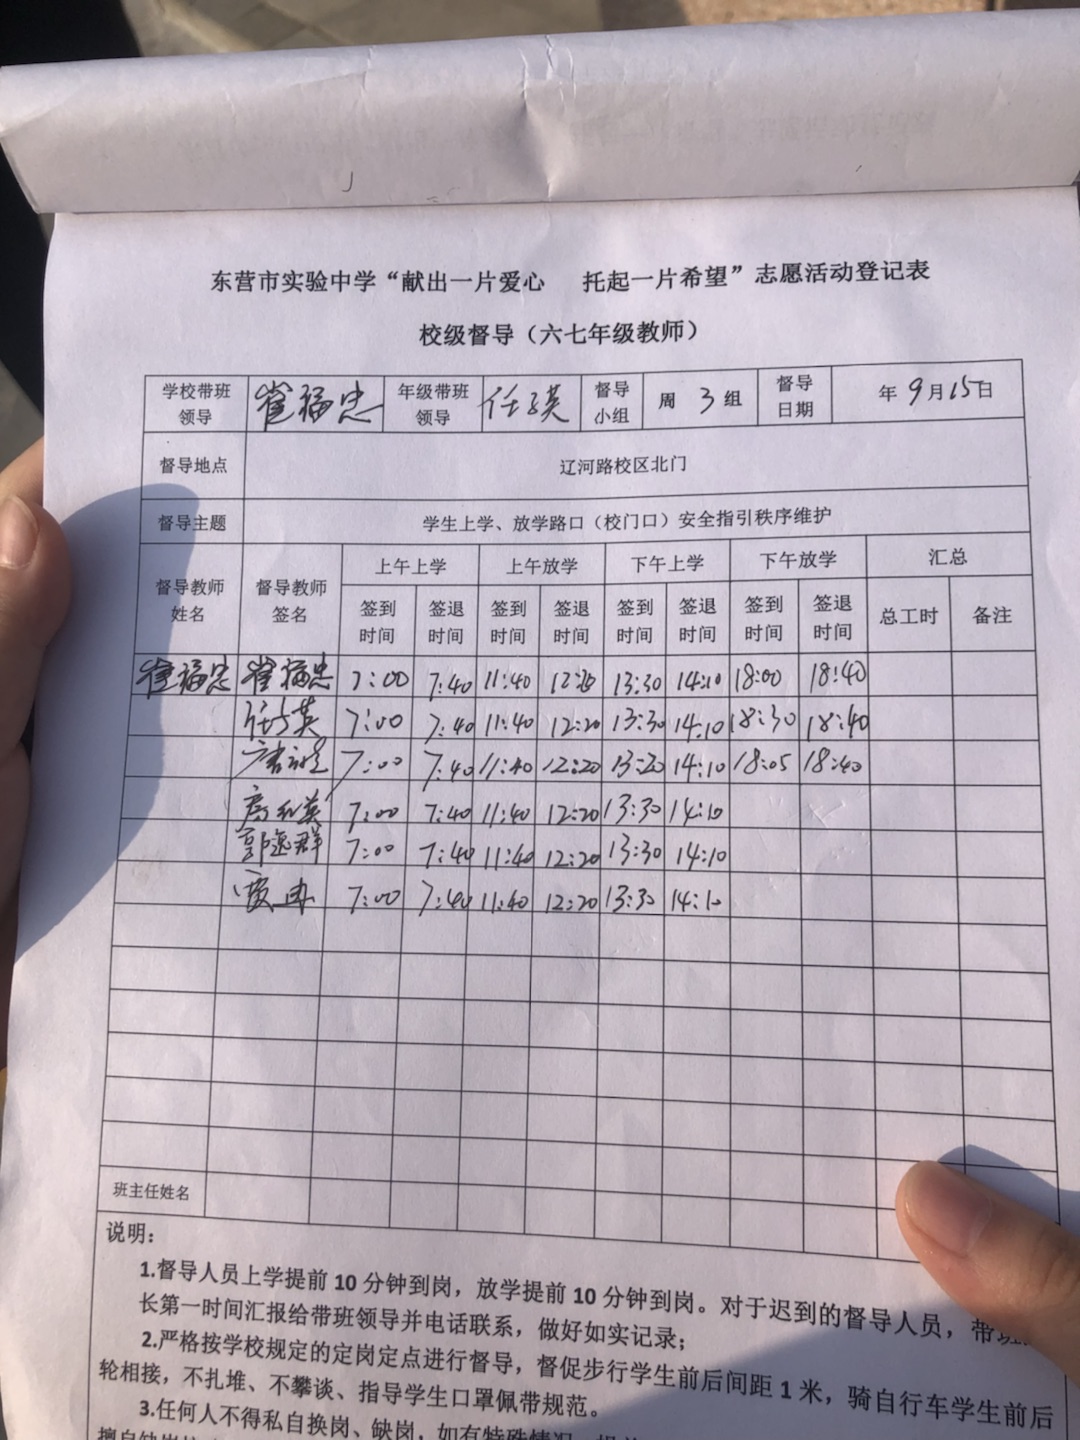 东营市实验中学“献出一片爱心 托起一片希望”志愿活动登记表
校级督导（六七年级教师）
学校带班领导 崔福忠 年级带班领导 任英 督导小组 周 3 组 督导日期 年 9 月 15 日
督导地点 辽河路校区北门
督导主题 学生上学、放学路口（校门口）安全指引秩序维护
督导教师姓名 督导教师签名 上午上学 上午放学 下午上学 下午放学 汇总
签到时间 签退时间 签到时间 签退时间 签到时间 签退时间 签到时间 签退时间 总工时 备注
崔福忠 崔福忠 7:00 7:40 11:40 12:20 13:30 14:10 18:00 18:40
任英 7:00 7:40 11:40 12:20 13:30 14:10 18:30 18:40
7:00 7:40 11:40 12:20 13:20 14:10 18:05 18:40
7:00 7:40 11:40 12:20 13:30 14:10
郭 群 7:00 7:40 11:40 12:20 13:30 14:10
7:00 7:40 11:40 12:20 13:30 14:10
班主任姓名
说明：
1.督导人员上学提前 10 分钟到岗，放学提前 10 分钟到岗。对于迟到的督导人员，带班
长第一时间汇报给带班领导并电话联系，做好如实记录；
2.严格按学校规定的定岗定点进行督导，督促步行学生前后间距 1 米，骑自行车学生前后
轮相接，不扎堆、不攀谈、指导学生口罩佩带规范。
3.任何人不得私自换岗、缺岗，如有特殊情况